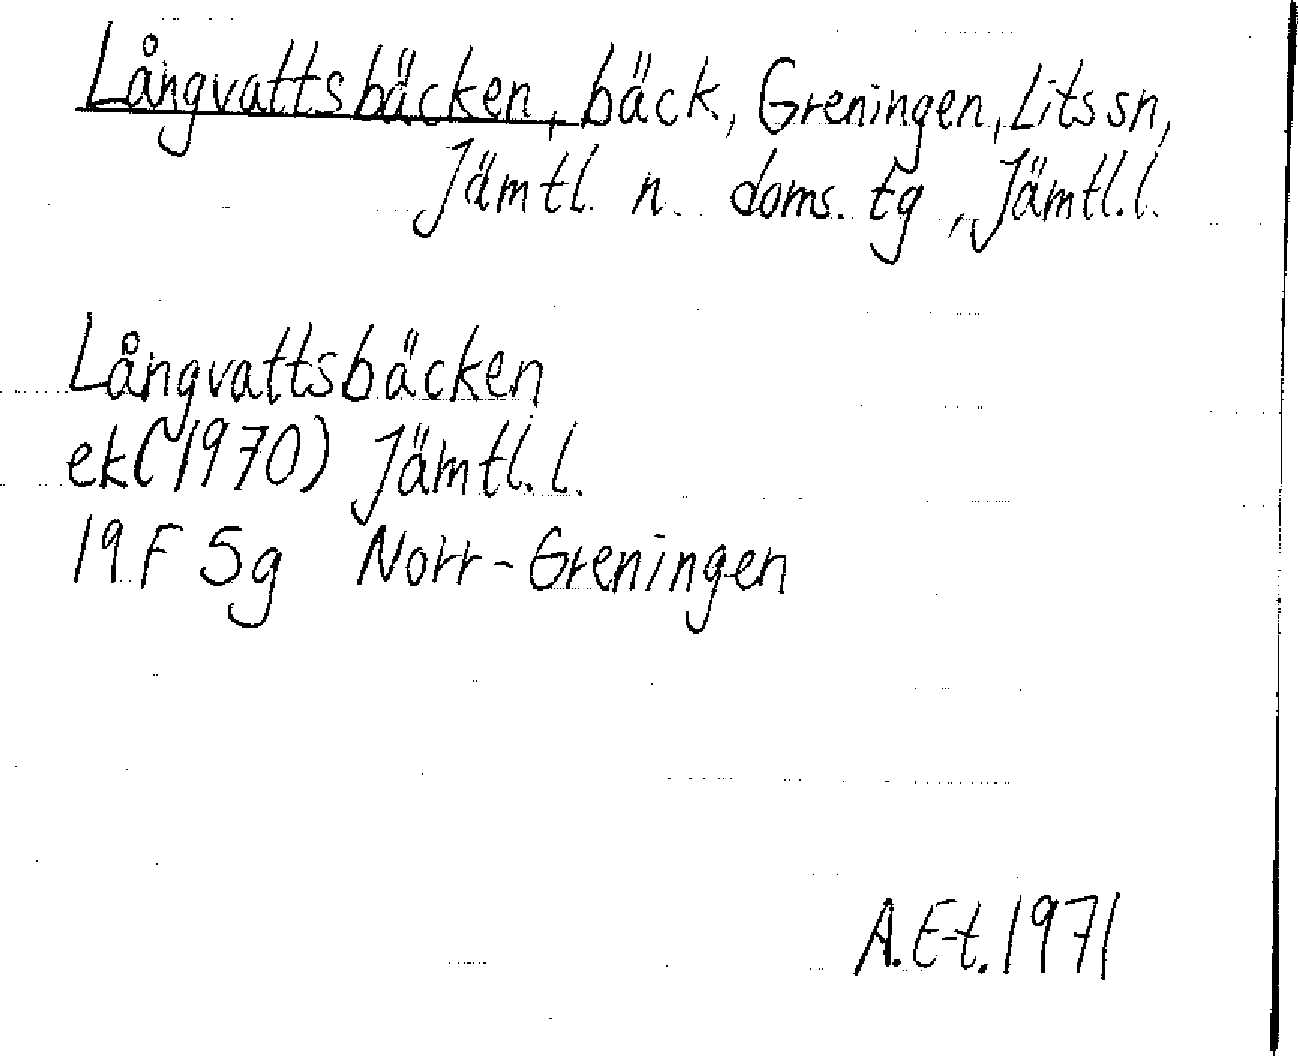 Långvattsbäcken, bäck, Greningen, Lits sn,
Jämtl. n. doms. tg, Jämtl.l.
Långvattsbäcken
ek (1970) Jämtl.l.
19 F 5g Norr-Greningen
A.E-t. 1971